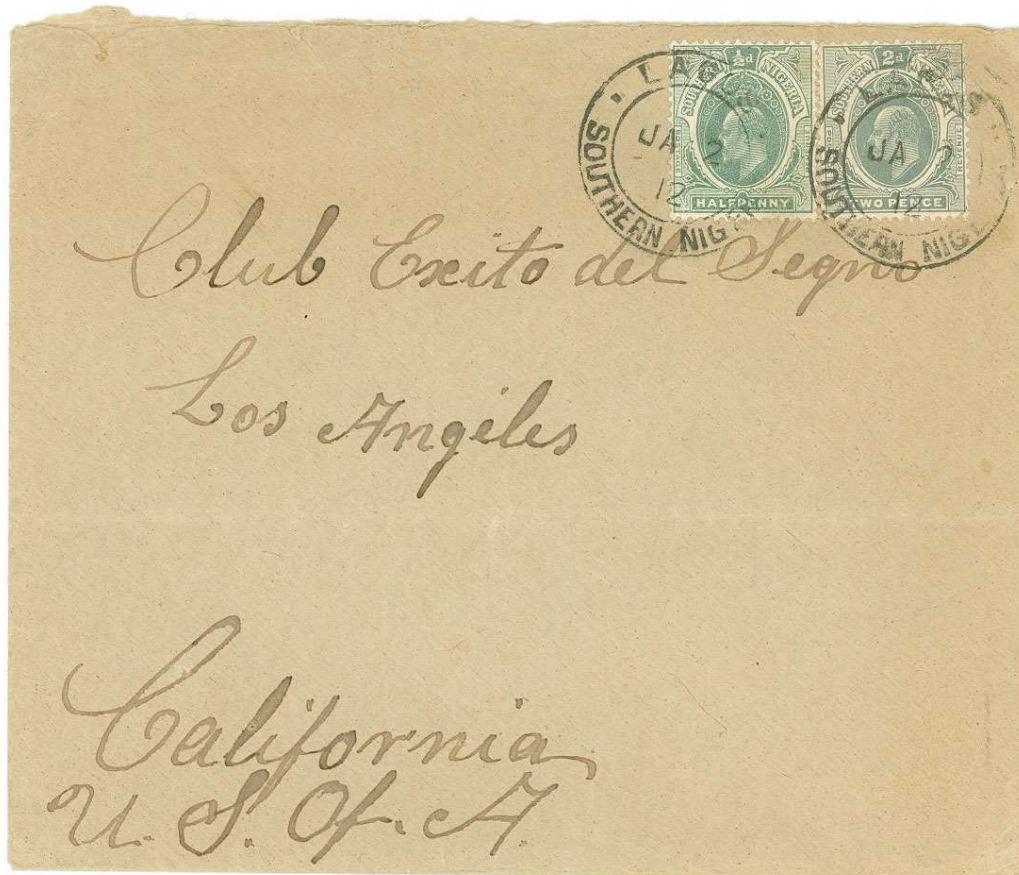 LAG
JA 2
12
SOUTHERN NIG
SOUTHERN NIGERIA
½d
HALFPENNY
SOUTHERN NIGERIA
2d
TWO PENCE
JA 2
12
SOUTHERN NIGE
Club Exito del Segno
Los Angeles
California
U. S. Of. A.